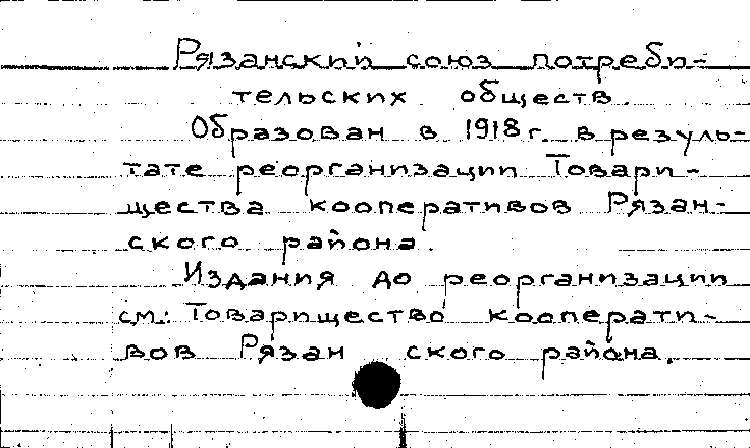 Рязанский союз потреби-
тельских обществ.
Образован в 1918 г. в резуль-
тате реорганизации Товари-
щества кооперативов Рязан-
ского района.
Издания до реорганизации
см: Товарищество коопрати-
вов Рязан ского района.